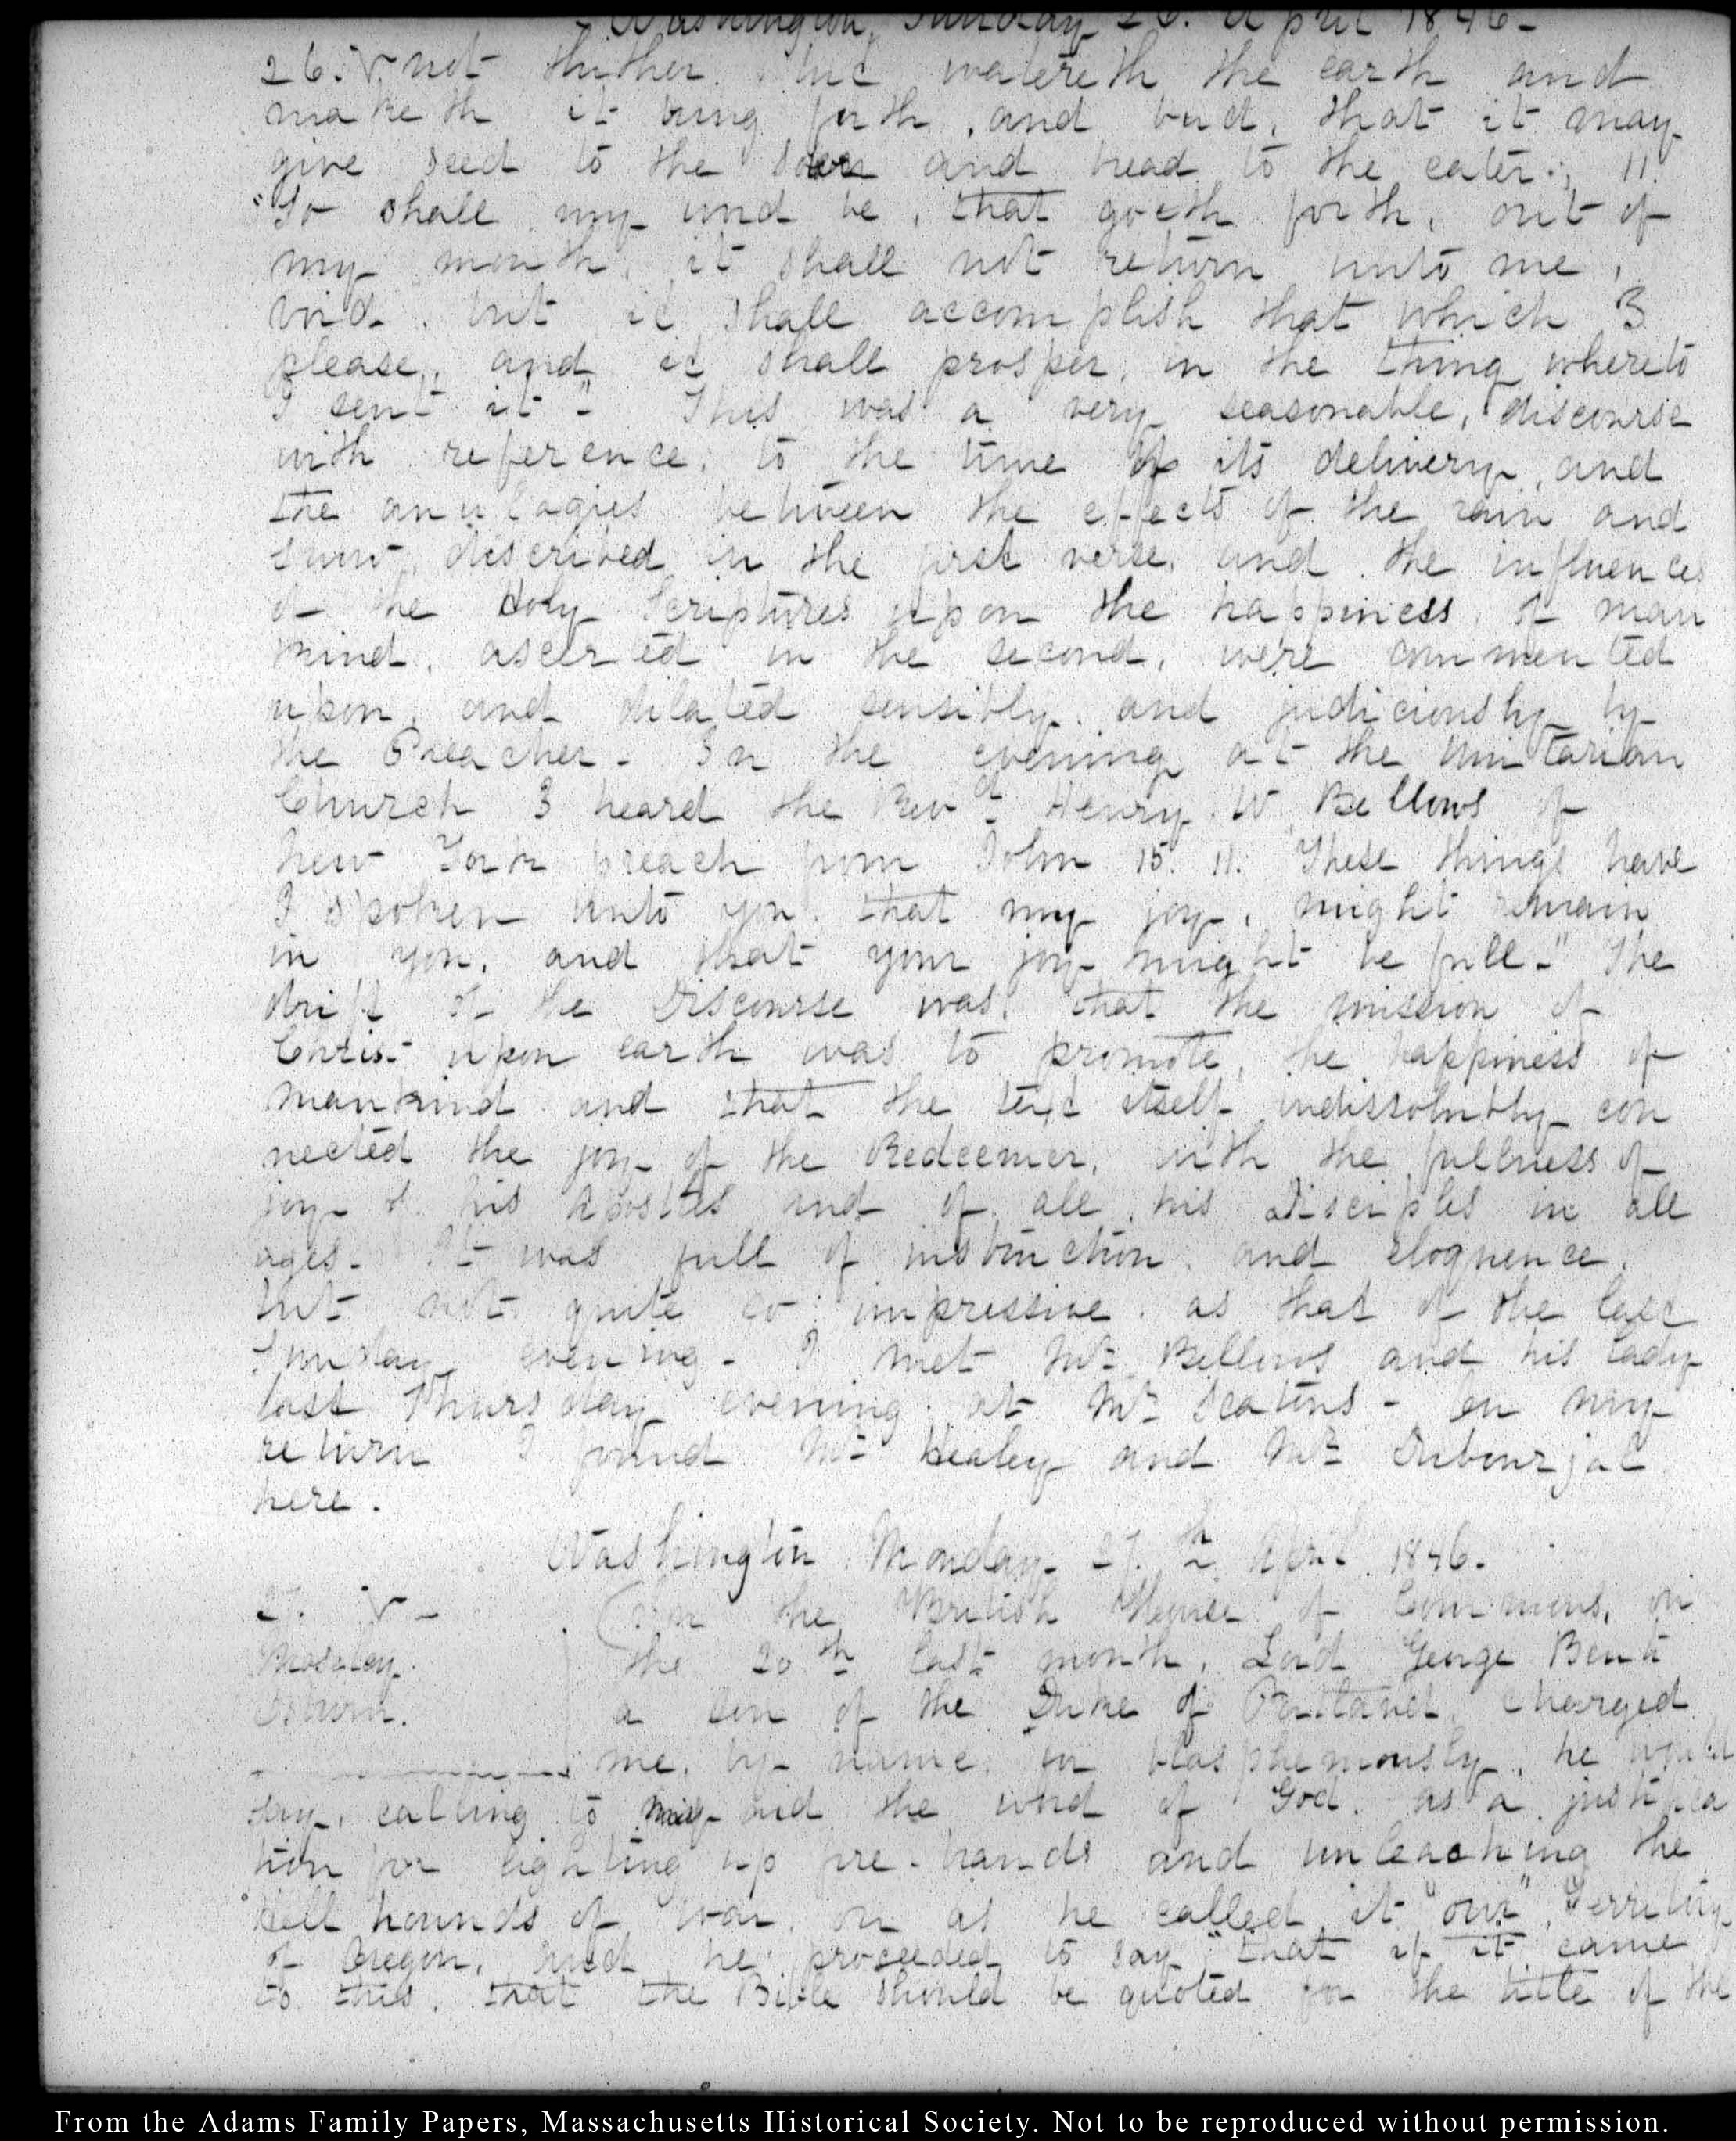 Washington, Sunday 26. April 1846-
26. V. not thither but watereth the earth and
maketh it bring forth, and bud, that it may
give seed to the sower and bread to the eater; 11.
"So shall my word be, that goeth forth, out of
my mouth, it shall not return unto me,
void, but it shall accomplish that which I
please, and it shall prosper, in the thing whereto
I sent it" - This was a very seasonable, discourse
with reference, to the time of its delivery, and
the analogies between the effects of the rain and
snow, described in the first verse, and the influences
of the Holy Scriptures upon the happiness of man
kind, asserted in the second, were commented
upon, and dilated sensibly, and judiciously by
the Preacher - In the evening at the Unitarian
Church I heard the Revd. Henry W Bellows of
New York preach from John 15. 11. "These things have
I spoken unto you, that my joy, might remain
in you, and that your joy might be full-" The
drift of the Discourse was, that the mission of
Christ upon earth was to promote, the happiness of
mankind and that the text itself indissolubly con
nected the joy of the Redeemer, with the fullness of
joy of his Apostles and of all his Disciples in all
ages. It was full of instruction, and eloquence,
but not quite so impressive, as that of the last
Sunday evening - I met Mr. Bellows and his Lady
last Thursday evening at Mr. Seatons - On my
return I found Mr. Healey and Mr. Dubourjal
here.
Washington Monday 27.th April 1846.
27. V - In the British House of Commons, on
Moseley. the 20th last month, Lord George Bent
Osborn. a son of the Duke of Portland, charged
me, by name, for blasphemously, he would
say, calling to my aid the word of God, as a justifica
tion for lighting up fire-brands and unleashing the
hell hounds of war, on as he called it "our" Territory
of Oregon, and he proceeded to say "that if it came
to this, that the Bible should be quoted for the title of the
From the Adams Family Papers, Massachusetts Historical Society. Not to be reproduced without permission.